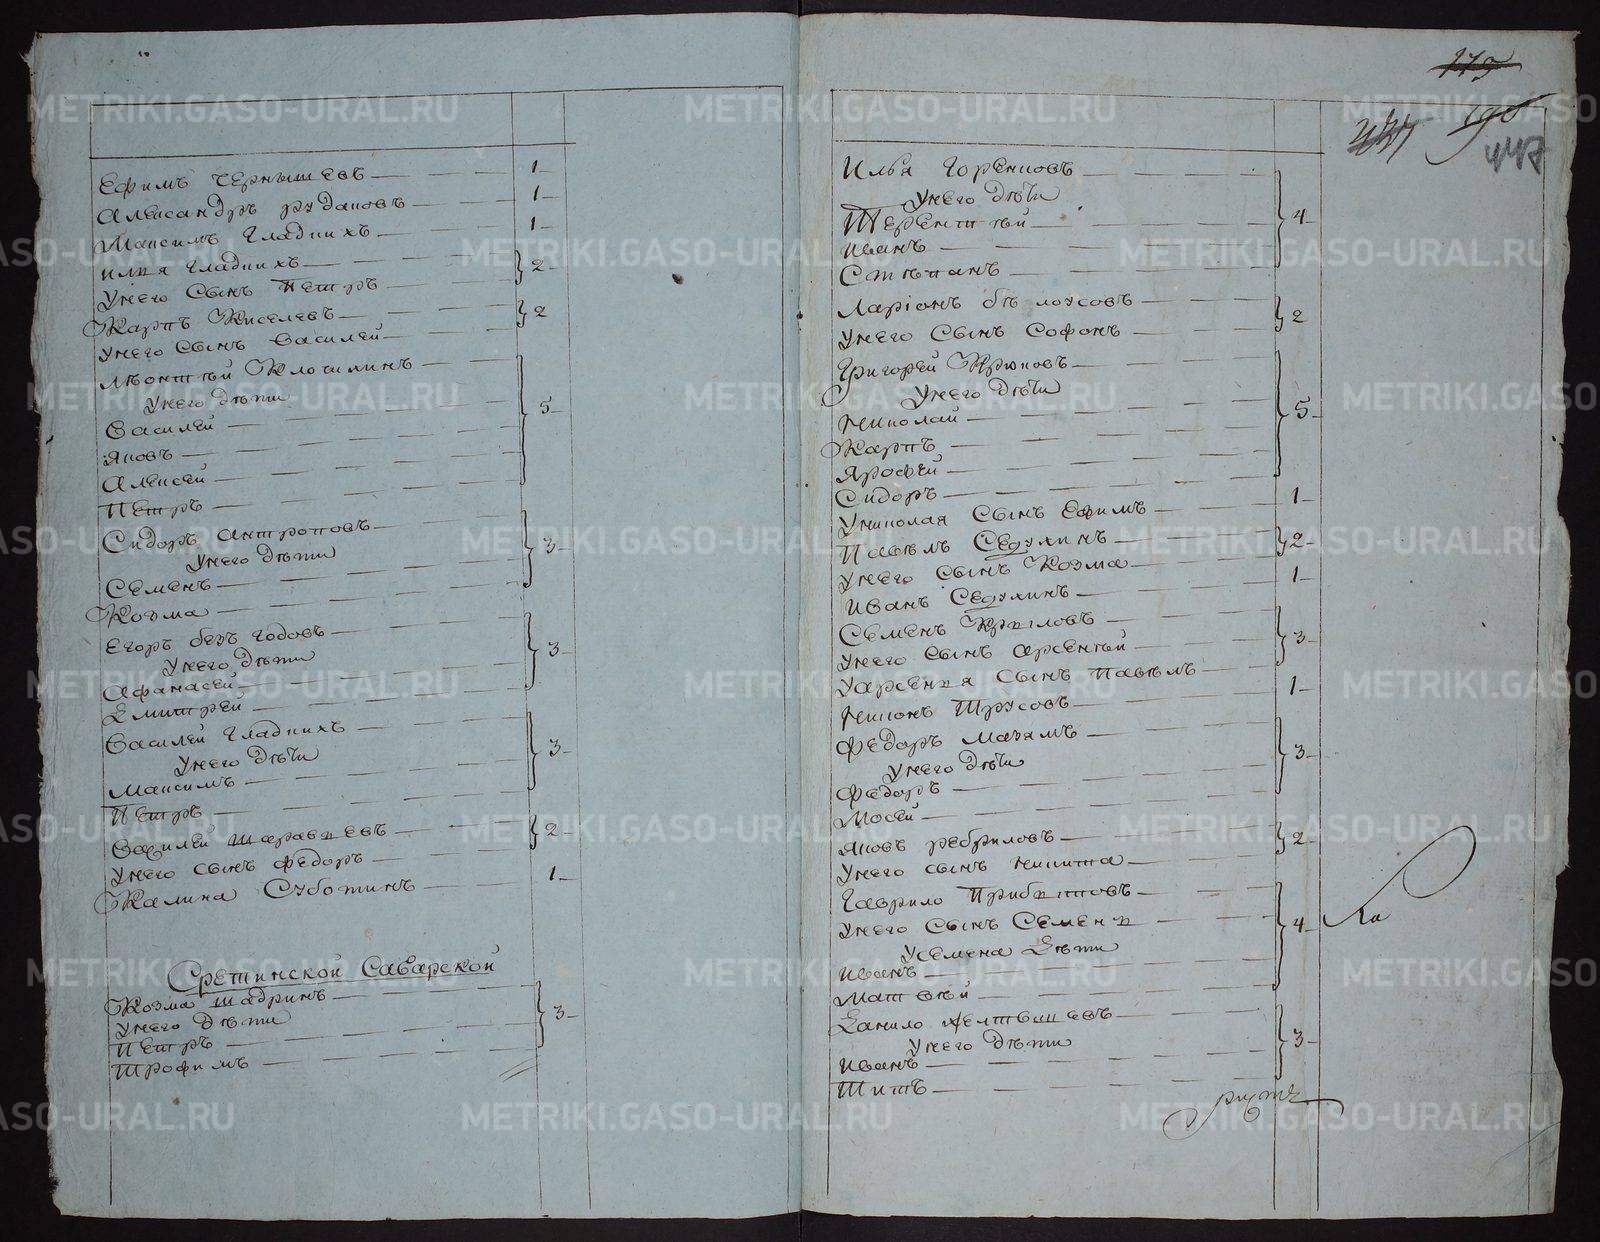 Ефимъ Чернышевъ 1
Александръ рудаковъ 1
Максимъ Гладкихъ 1
илья гладкихъ
Унего Сынъ Петръ 2
Карпъ Киселевъ
унего Сынъ Василей 2
леонтьй Клочихинъ
Унего дѣти
Василей
Яковъ
Алексей
Петръ 5
Сидоръ Антроповъ
Унего дѣти
Семенъ
Козма 3
Егоръ безъ годовъ
Унего дѣти
Афанасей
Дмитрей 3
Василей Гладкихъ
Унего дѣти
Максимъ
Петръ 3
Василей
Унего сынъ Федоръ 2
Калина Суботинъ 1
Сретинской Саварской
Козма шадринъ
Унего дѣти
Петръ
Трофимъ 3
115
196
447
Илья Горенковъ
Унего дѣти
Терентьй
иванъ
Степанъ 4
Ларіонъ бѣлоусовъ
Унего Сынъ Софонъ 2
Григорей Крюковъ
Унего дѣти
Николай
Карпъ
Ярофей 5
Сидоръ
Униколая Сынъ Ефимъ 1
Павелъ Седухинъ
Унего Сынъ Козма 2
Иванъ Седухинъ 1
Семенъ Крыловъ
Унего сынъ арсентьй
Уарсенья Сынъ Павелъ 3
Никонъ Трусовъ 1
Федоръ
Унего дѣти
Федоръ
Мосей 3
Яковъ ребриловъ
Унего сынъ никита 2
Гаврило Прибытовъ
Унего Сынъ Семенъ
Усемена Дѣти
Иванъ
Матвѣй 4
Данило желтышевъ
Унего дѣти
Иванъ
Титъ 3
METRIKI.GASO-URAL.RU